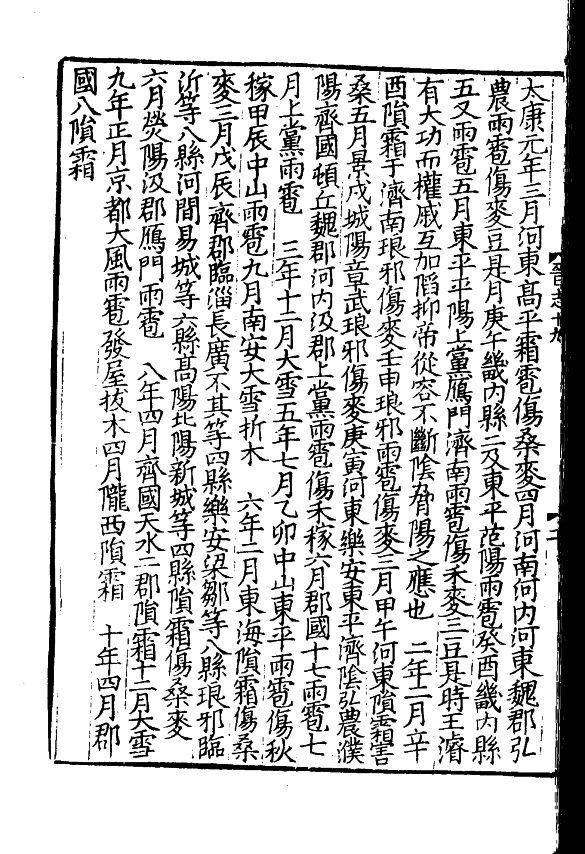 太康元年三月河東髙平霜雹傷桑麥四月河南河内河東魏郡弘
農雨雹傷麥豆是月庚午畿内縣二及東平范陽雨雹癸酉畿内縣
五又雨雹五月東平平陽上黨鴈門濟南雨雹傷禾麥三豆是時王濬
有大功而權戚互加陷抑帝從容不斷隂脅陽之應也　二年二月辛
酉隕霜于濟南琅邪傷麥壬申琅邪雨雹傷麥三月甲午河東隕霜害
桑五月景戌城陽章武琅邪傷麥庚寅河東樂安東平濟隂弘農濮
陽齊國頓丘魏郡河内汲郡上黨雨雹傷禾稼六月郡國十七雨雹七
月上黨雨雹　三年十二月大雪五年七月乙卯中山東平雨雹傷秋
稼甲辰中山雨雹九月南安大雪折木　六年二月東海隕霜傷桑
麥三月戊辰齊郡臨淄長廣不其等四縣樂安梁鄒等八縣琅邪臨
沂等八縣河間易城等六縣髙陽北陽新城等四縣隕霜傷桑麥
六月熒陽汲郡鴈門雨雹　八年四月齊國天水二郡隕霜十二月大雪
九年正月京都大風雨雹發屋拔木四月隴西隕霜　十年四月郡
國八隕霜